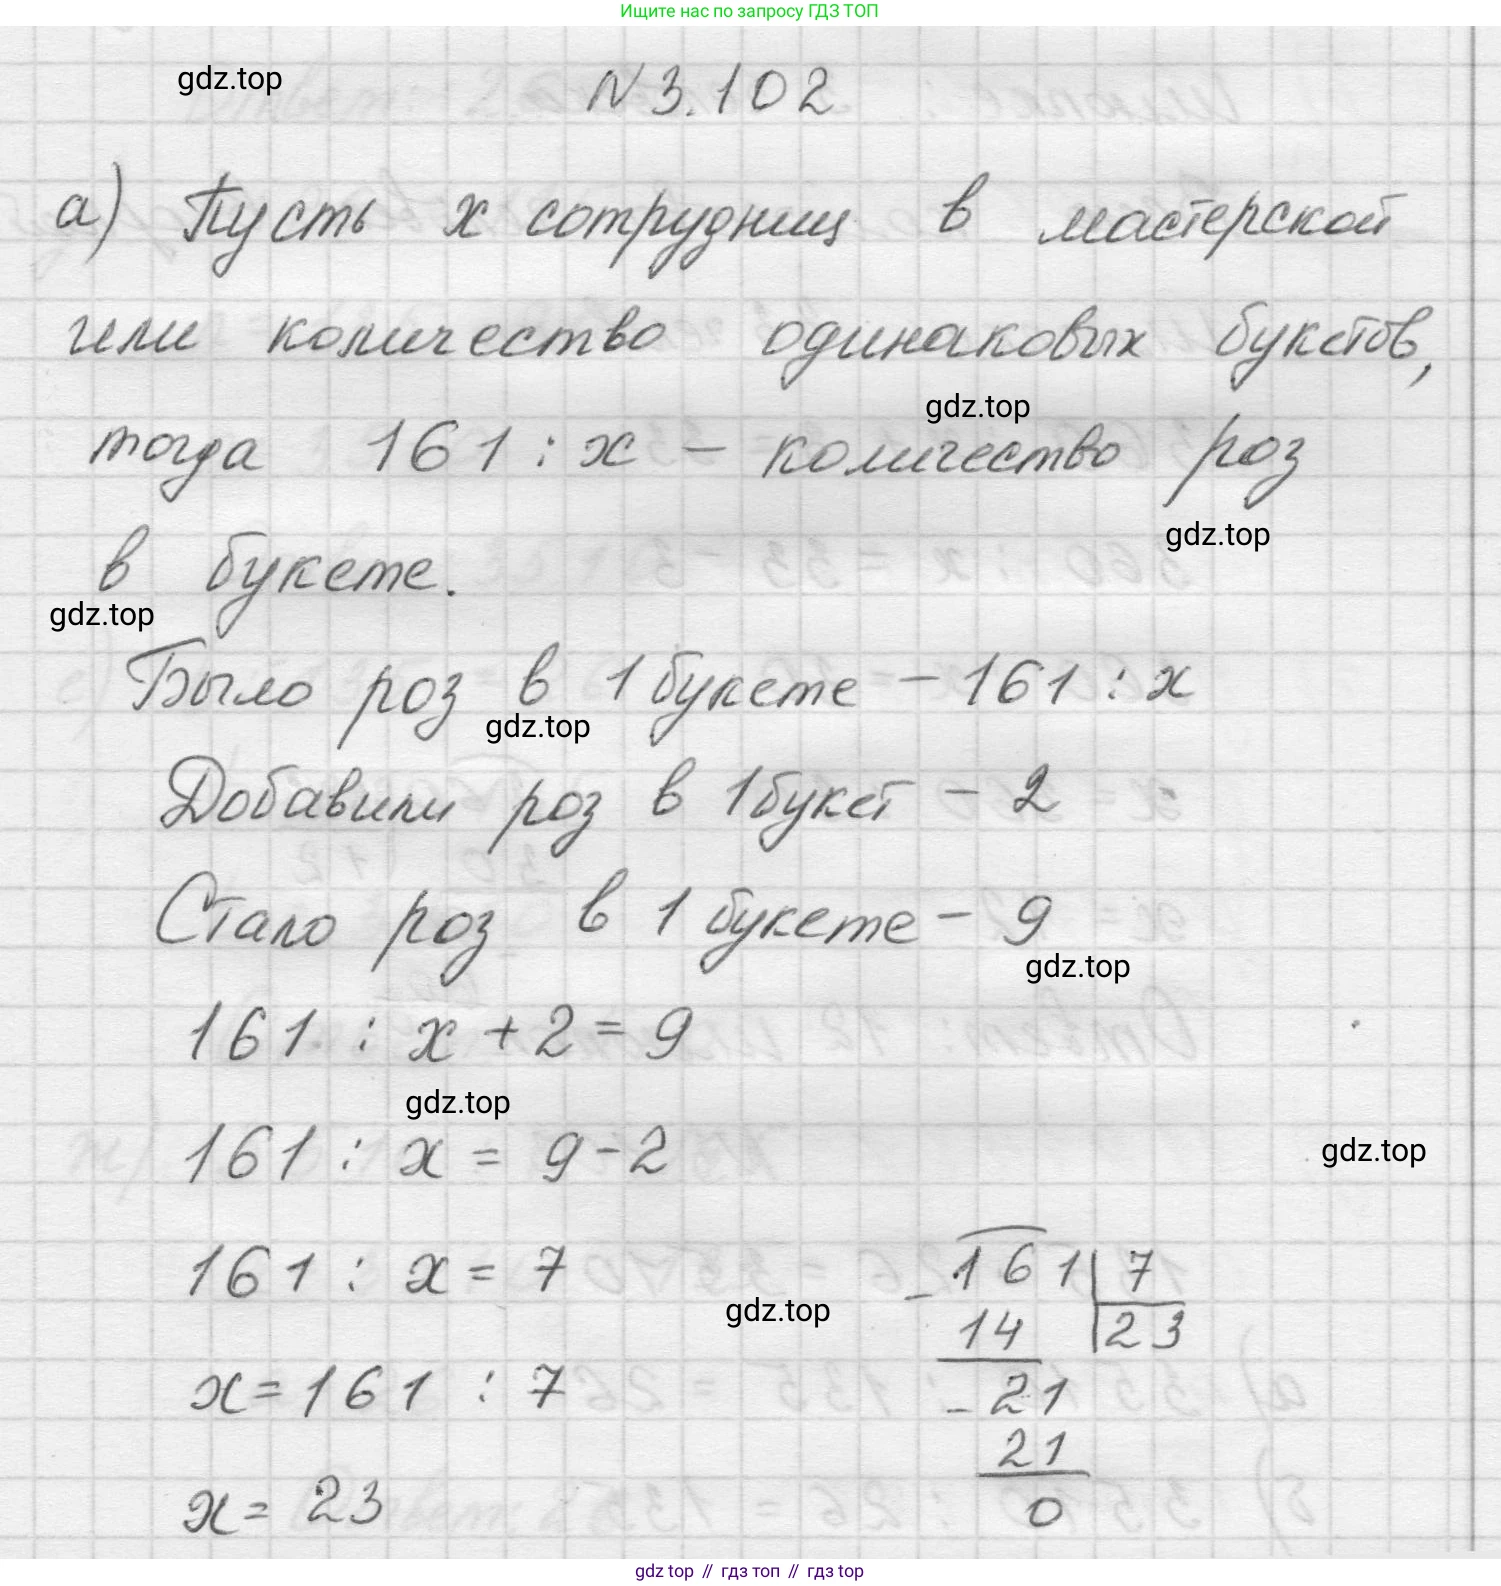 Ищите нас по запросу ГДЗ ТОП
gdz.top
N 3.102
а) Пусть х сотрудниц в мастерской
или количество одинаковых букетов,
gdz.top
тогда 161 : х – количество роз
gdz.top
в букете.
gdz.top
Было роз в 1 букете – 161 : х
gdz.top
Добавили роз в 1 букет – 2
Стало роз в 1 букете – 9
gdz.top
161 : х + 2 = 9
gdz.top
161 : х = 9 – 2
gdz.top
161 : х = 7
161 | 7
gdz.top
– 14 | 23
х = 161 : 7
– 21
21
х = 23
0
gdz top // гдз топ // гдз top